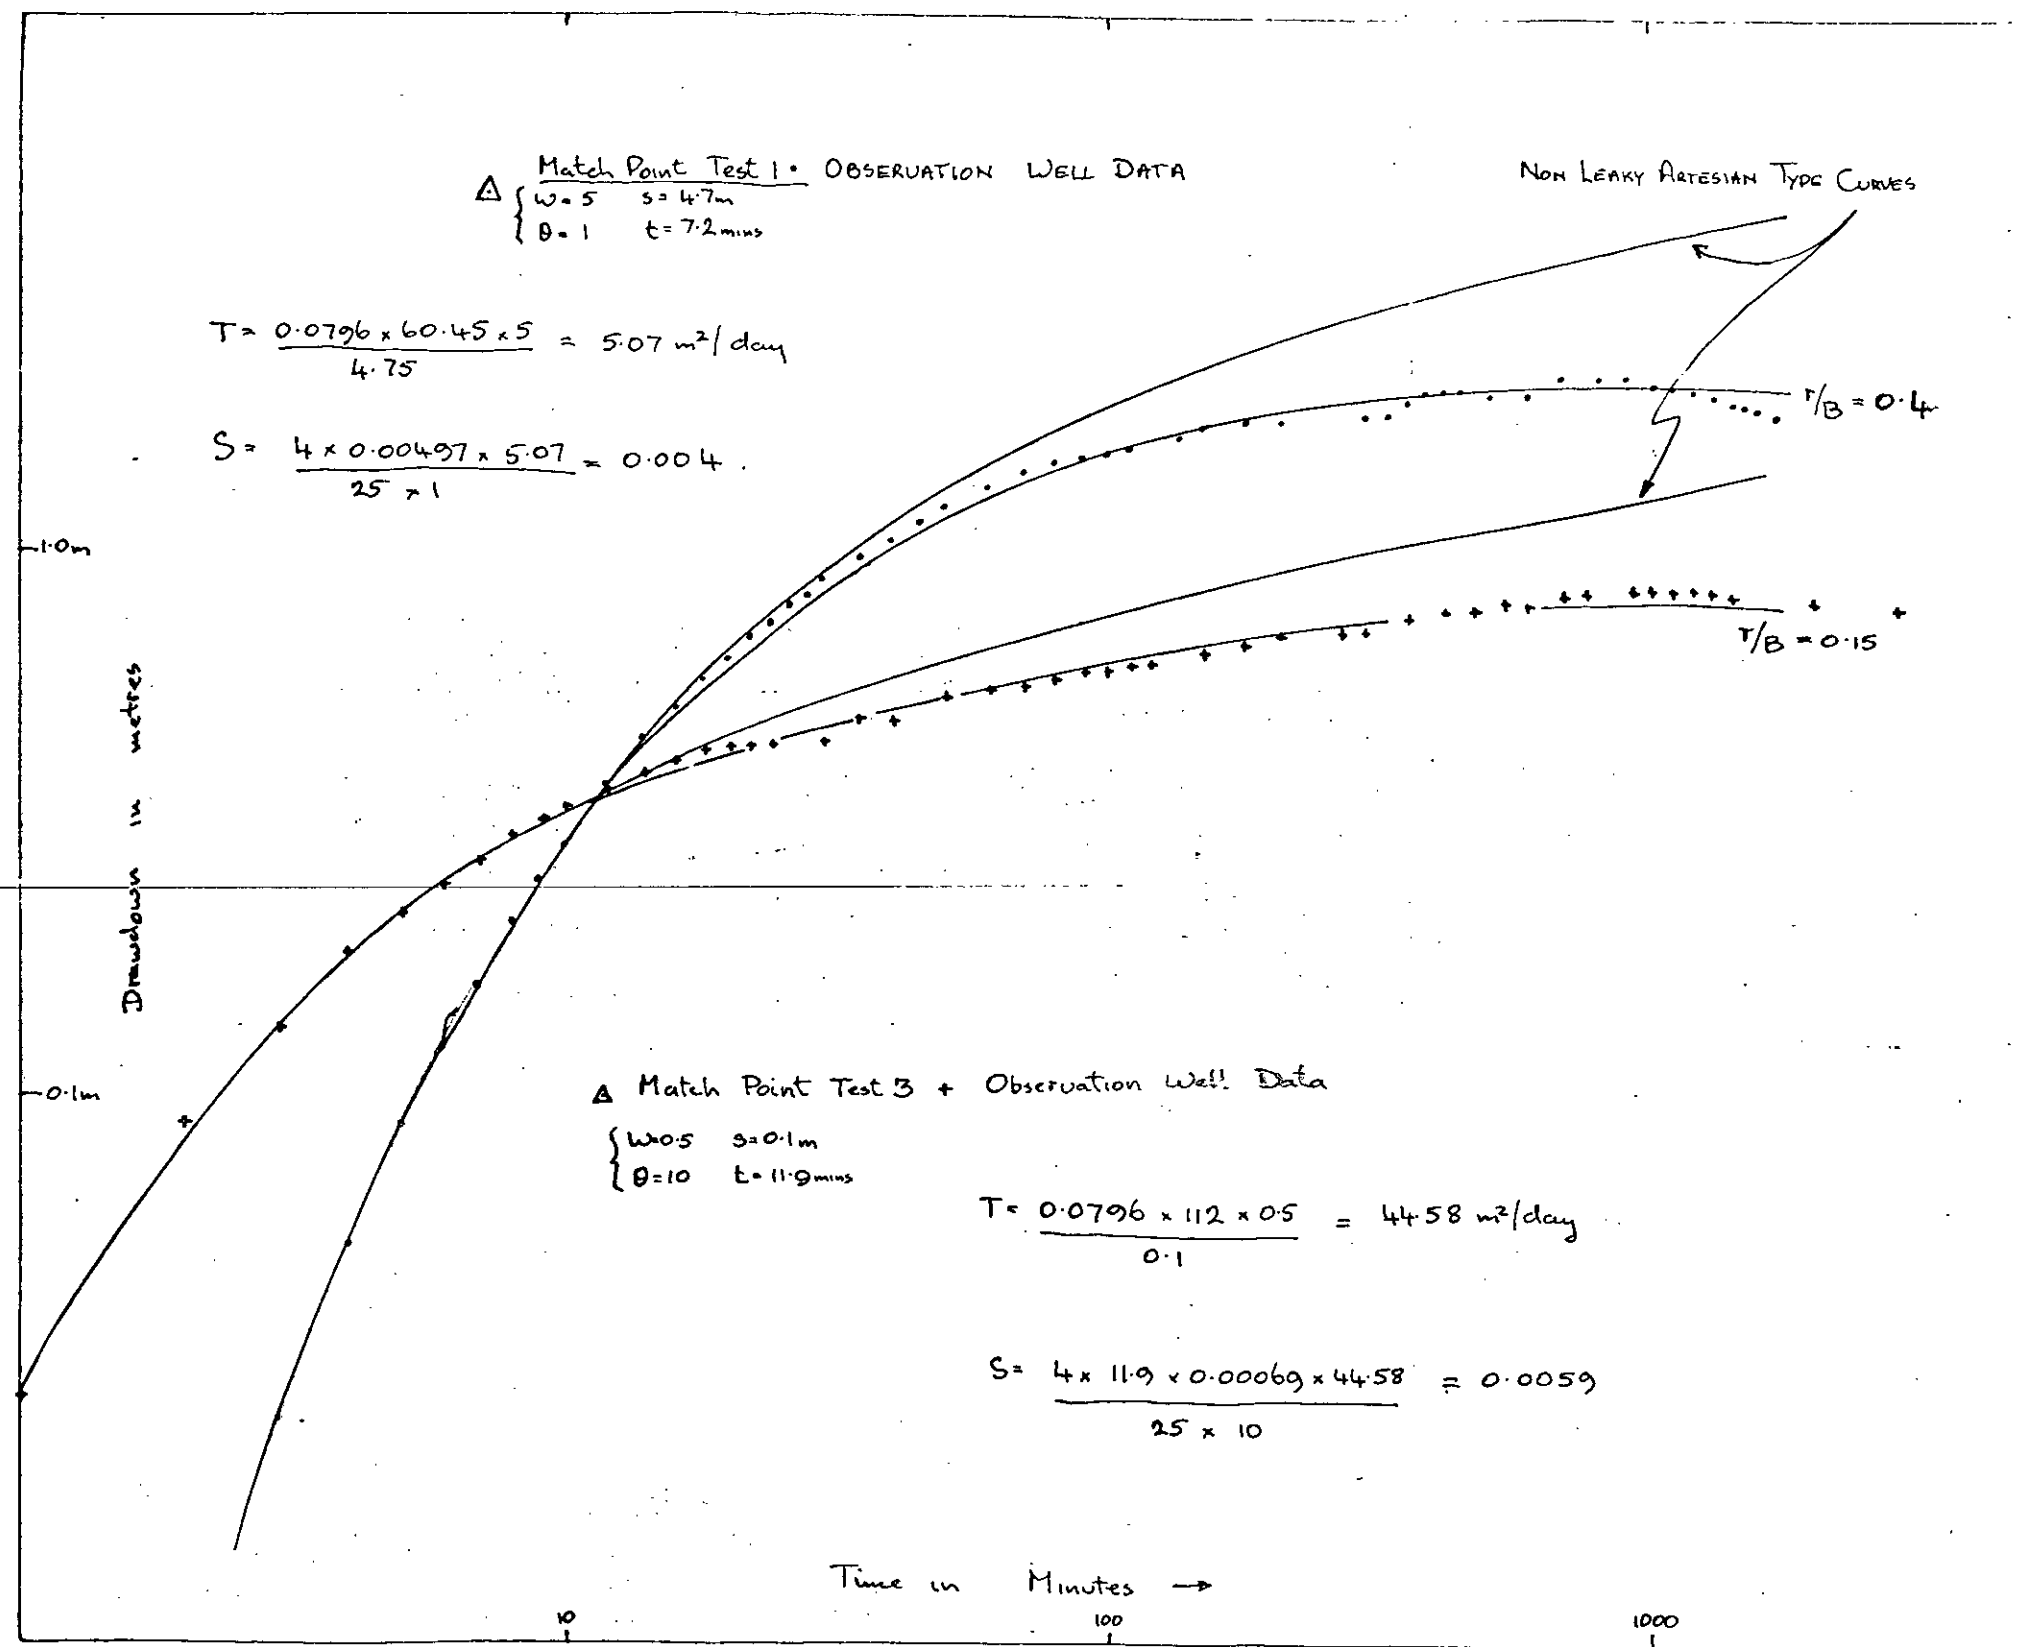 Match Point Test 1 • OBSERVATION WELL DATA
W=5 s=4.7m
θ=1 t=7.2mins
NON LEAKY ARTESIAN TYPE CURVES
T= 0.0796 x 60.45 x 5 = 5.07 m²/day
4.75
S= 4 x 0.00497 x 5.07 = 0.004
25 x 1
r/B = 0.4
1.0m
r/B = 0.15
Drawdown in metres
0.1m
Match Point Test 3 + Observation Well Data
W=0.5 s=0.1m
θ=10 t=11.9mins
T= 0.0796 x 112 x 0.5 = 44.58 m²/day
0.1
S= 4 x 11.9 x 0.00069 x 44.58 = 0.0059
25 x 10
Time in Minutes →
10 100 1000